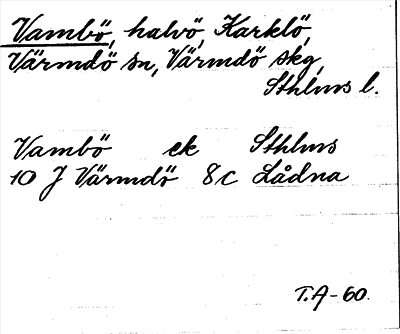 Vambö, halvö, Karklö,
Värmdö sn, Värmdö skg,
Sthlms l.
Vambö ek Sthlms
10 J Värmdö 8c Lådna
T.A-60.